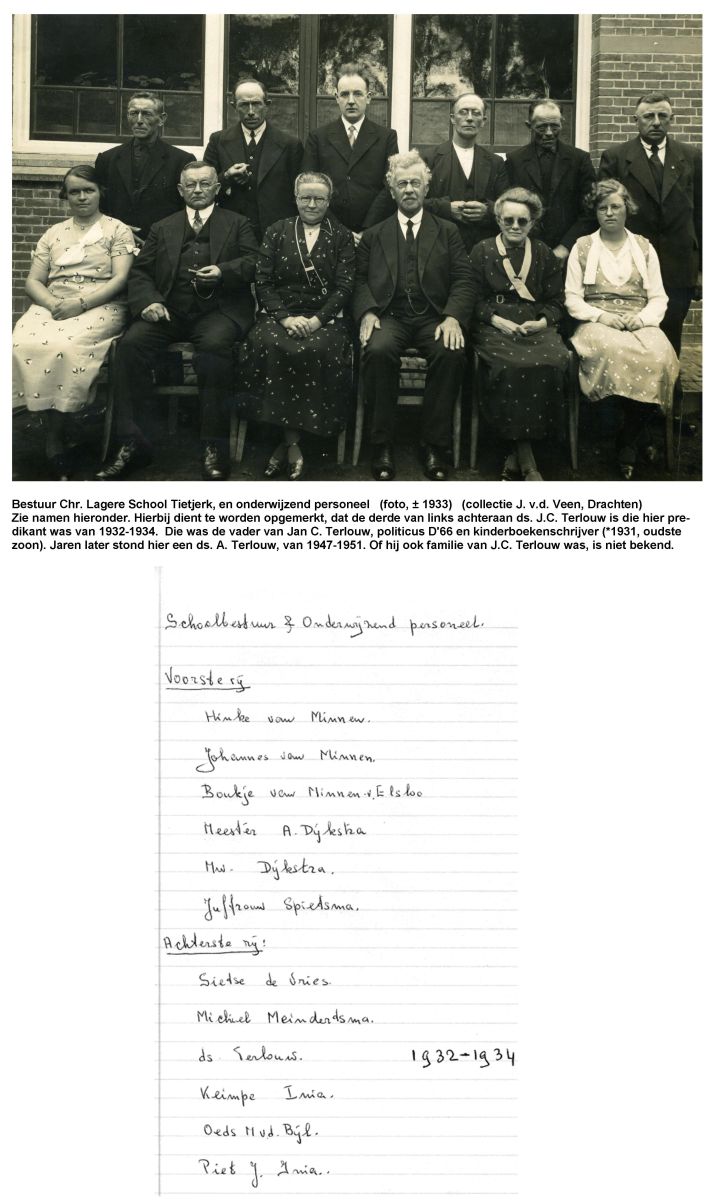 Bestuur Chr. Lagere School Tietjerk, en onderwijzend personeel (foto, ± 1933) (collectie J. v.d. Veen, Drachten)
Zie namen hieronder. Hierbij dient te worden opgemerkt, dat de derde van links achteraan ds. J.C. Terlouw is die hier pre-
dikant was van 1932-1934. Die was de vader van Jan C. Terlouw, politicus D'66 en kinderboekenschrijver (*1931, oudste
zoon). Jaren later stond hier een ds. A. Terlouw, van 1947-1951. Of hij ook familie van J.C. Terlouw was, is niet bekend.
Schoolbestuur & Onderwijzend personeel.
Voorste rij
Hinke van Minnen.
Johannes van Minnen.
Boukje van Minnen-v. Elsloo
Meester A. Dijkstra
Mw. Dijkstra.
Juffrouw Spietsma.
Achterste rij:
Sietse de Vries.
Michiel Meindertsma.
ds. Terlouw. 1932-1934
Keimpe Inia.
Oeds M v.d. Bijl.
Piet J. Inia.